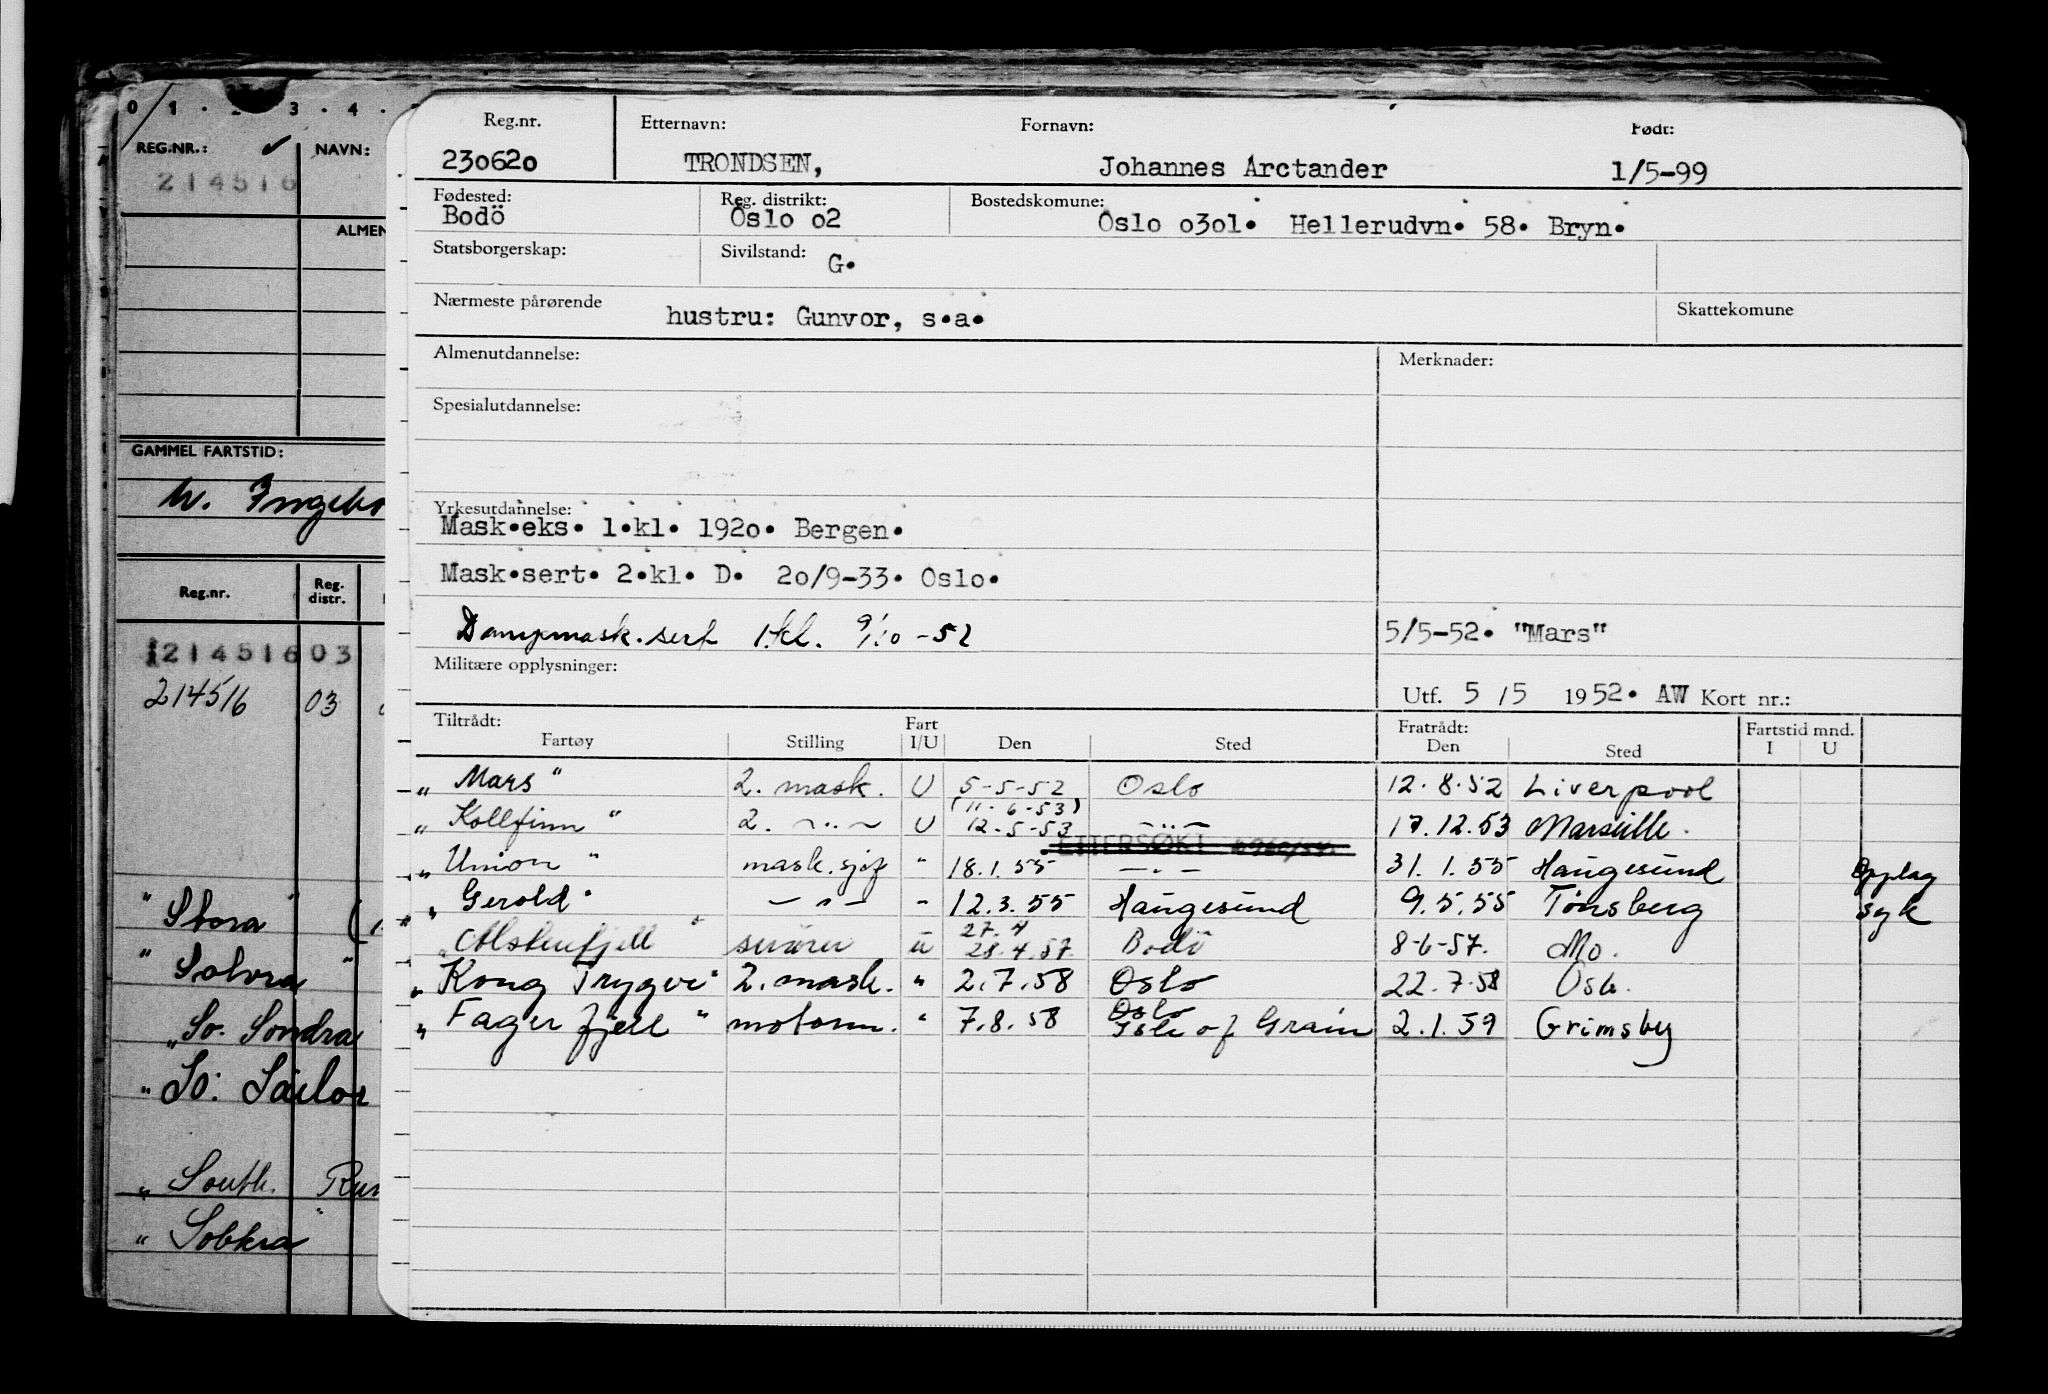 0 1 . 3 . 4 .
REG.NR.: NAVN:
214516
ALMEN
GAMMEL FARTSTID:
Reg.nr. Reg. distr.
21451603
214516 03
" Stora "
" Solvra "
"So. Sondra
" So: Sailor
" South. Run
" Sobkra "
Reg.nr. Etternavn: Fornavn: Født:
230620 TRONDSEN, Johannes Arctander 1/5-99
Fødested: Reg. distrikt: Bostedskomune:
Bodö Oslo o2 Oslo o3ol. Hellerudvn. 58. Bryn.
Statsborgerskap: Sivilstand: G.
Nærmeste pårørende hustru: Gunvor, s.a. Skattekomune
Almenutdannelse: Merknader:
Spesialutdannelse:
Yrkesutdannelse:
Mask.eks. 1.kl. 1920. Bergen.
Mask.sert. 2.kl. D. 20/9-33. Oslo.
Dampmask.sert 1.kl. 9/10-52 5/5-52. "Mars"
Militære opplysninger:
Utf. 5/5 1952. AW Kort nr.:
Tiltrådt: Fart Fratrådt: Fartstid mnd.
Fartøy Stilling I/U Den Sted Den Sted I U
"Mars" 2. mask. U 5-5-52 Oslo 12.8.52 Liverpool
(11-6-53)
"Kollfinn" 2. -"- U 12-5-53 -"- 17.12.53 Marseille.
ETTERSØKT
"Union" mask.sjef " 18.1.55 -"- 31.1.55 Haugesund Opplag
"Gerold" -"- " 12.3.55 Haugesund 9.5.55 Tønsberg syk
27.4
"Alstenfjell" smører u 28.4.57. Bodö 8-6-57. Mo.
"Kong Trygve" 2.mask. " 2.7.58 Oslo 22.7.58 Oslo.
Oslo
"Fagerfjell" motorm. " 7.8.58 Isle of Grain 2.1.59 Grimsby